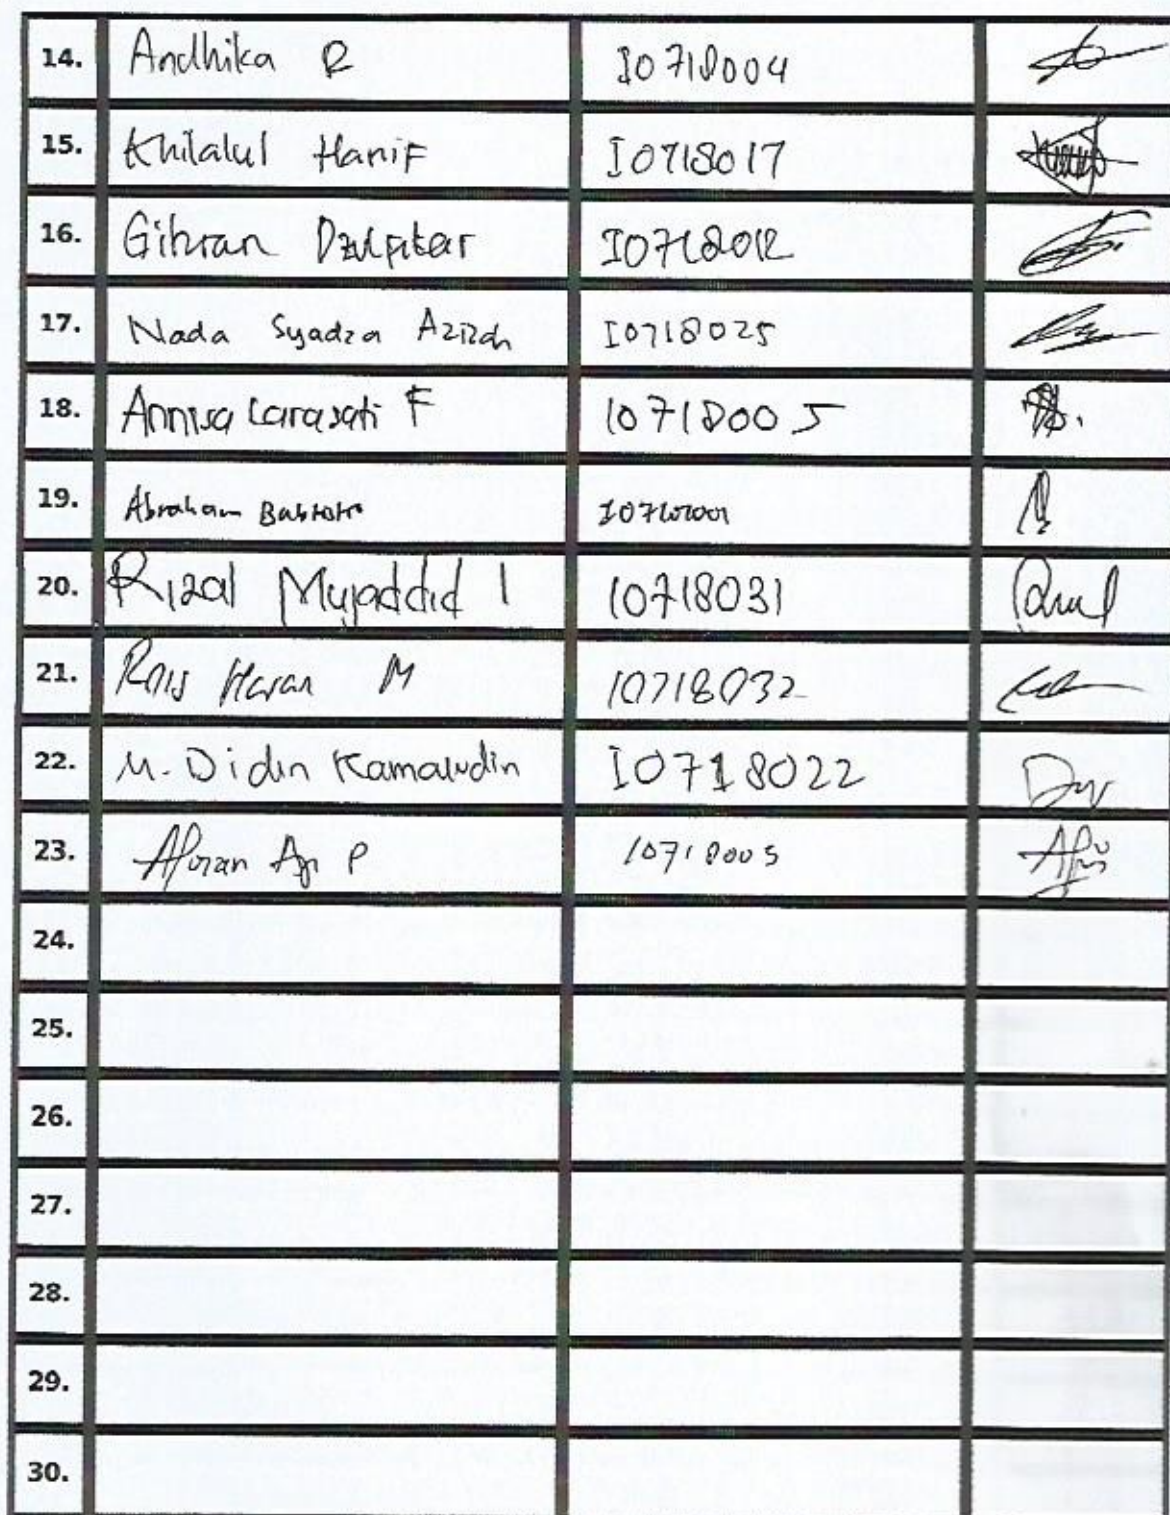 14. Andhika R I0718004
15. Khilalul Hanif I0718017
16. Gibran Dzulfikar I0718012
17. Nada Syadza Azizah I0718025
18. Annisa Larasati F I0718005
19. Abraham
20. Rizal Mujaddid I I0718031
21. Rais Hasan M I0718032
22. M. Didin Kamaludin I0718022
23. P
24.
25.
26.
27.
28.
29.
30.